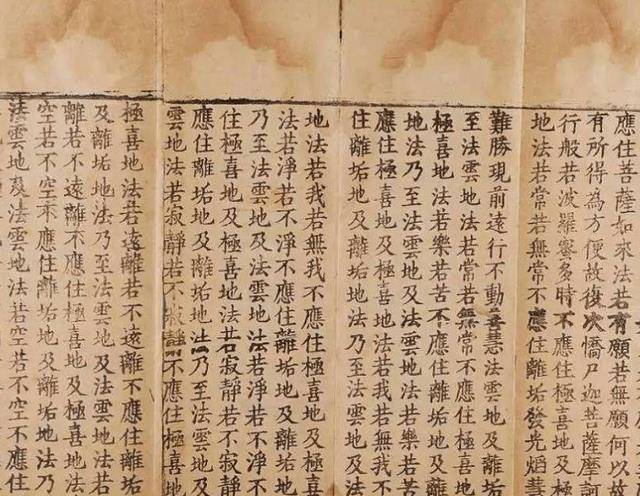 應住菩薩如來法若有願若無願何以故
有所得為方便故復次憍尸迦菩薩摩訶
行般若波羅蜜多時不應住極喜地及極
地法若常若無常不應住離垢發光焰慧
難勝現前遠行不動善慧法雲地及離垢
至法雲地法若常若無常不應住極喜地
極喜地法若樂若苦不應住離垢地及離
地法乃至法雲地及法雲地法若樂若苦
應住極喜地及極喜地法若我若無我不
住離垢地及離垢地法乃至法雲地及法
地法若我若無我不應住極喜地及極喜
法若淨若不淨不應住離垢地及離垢地
乃至法雲地及法雲地法若淨若不淨不
住極喜地及極喜地法若寂靜若不寂靜
應住離垢地及離垢地法乃至法雲地及
雲地法若寂靜若不寂靜不應住極喜地
極喜地法若遠離若不遠離不應住離垢
及離垢地法乃至法雲地及法雲地法若
離若不遠離不應住極喜地及極喜地法
空若不空不應住離垢地及離垢地法乃
法雲地及法雲地法若空若不空不應住